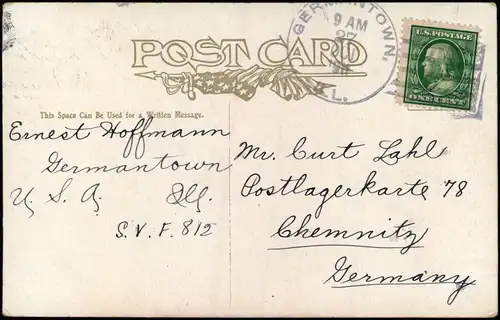 POST CARD
GERMANTOWN,
9 AM
27
ILL.
U.S. POSTAGE
ONE CENT
This Space Can Be Used for a Written Message.
Ernest Hoffmann
Germantown
U. S. A. Ill.
S. V. F. 812
Mr. Curt Lahl
Postlagerkarte 78
Chemnitz
Germany